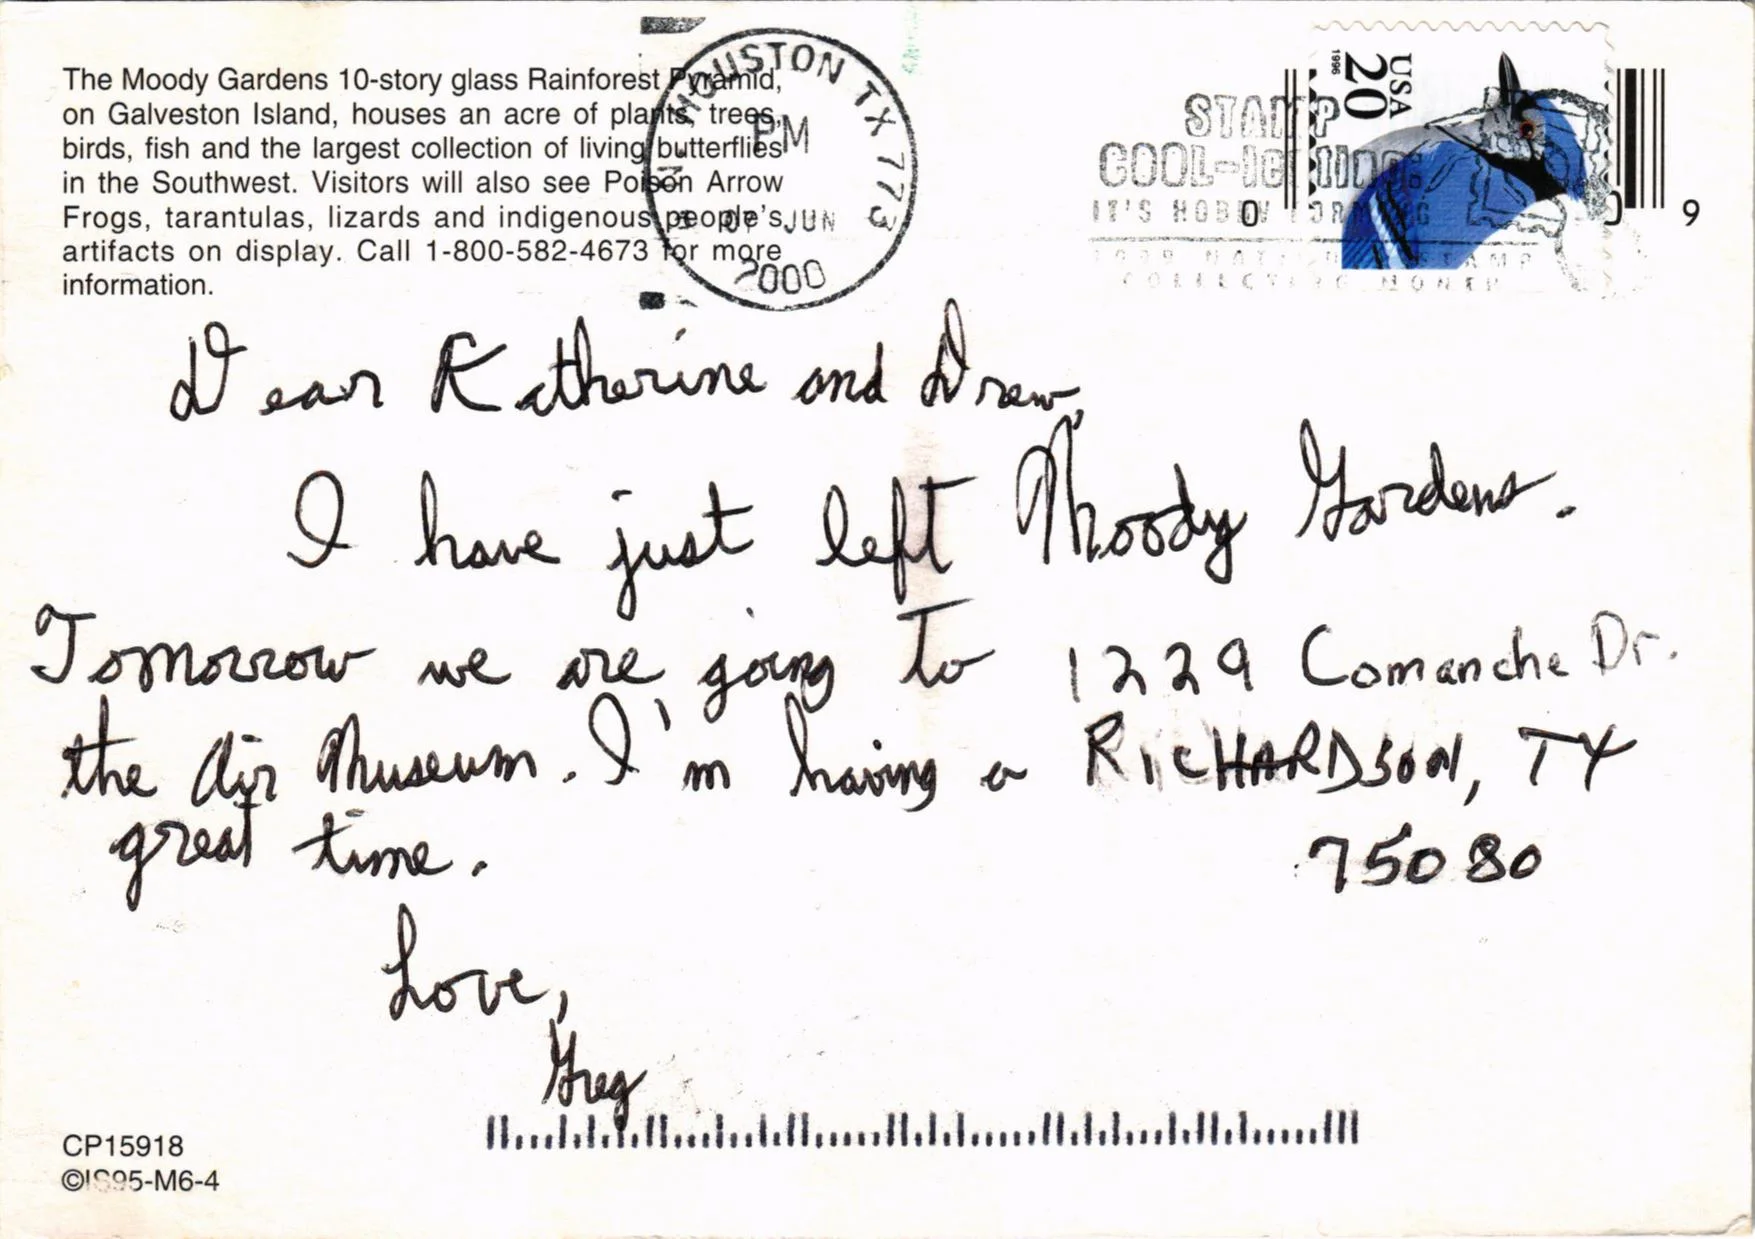 The Moody Gardens 10-story glass Rainforest Pyramid,
on Galveston Island, houses an acre of plants, trees,
birds, fish and the largest collection of living butterflies
in the Southwest. Visitors will also see Poison Arrow
Frogs, tarantulas, lizards and indigenous people's
artifacts on display. Call 1-800-582-4673 for more
information.
HOUSTON TX 773
PM
07 JUN
2000
STAMP
COOL-lecting
IT'S HOBBY FOR
STAMP
COLLECTING MONTH
USA
20
1996
0
9
Dear Katherine and Drew,
I have just left Moody Gardens.
Tomorrow we are going to
the Air Museum. I'm having a
great time.
Love,
Greg
1229 Comanche Dr.
RICHARDSON, TX
75080
CP15918
©IS95-M6-4